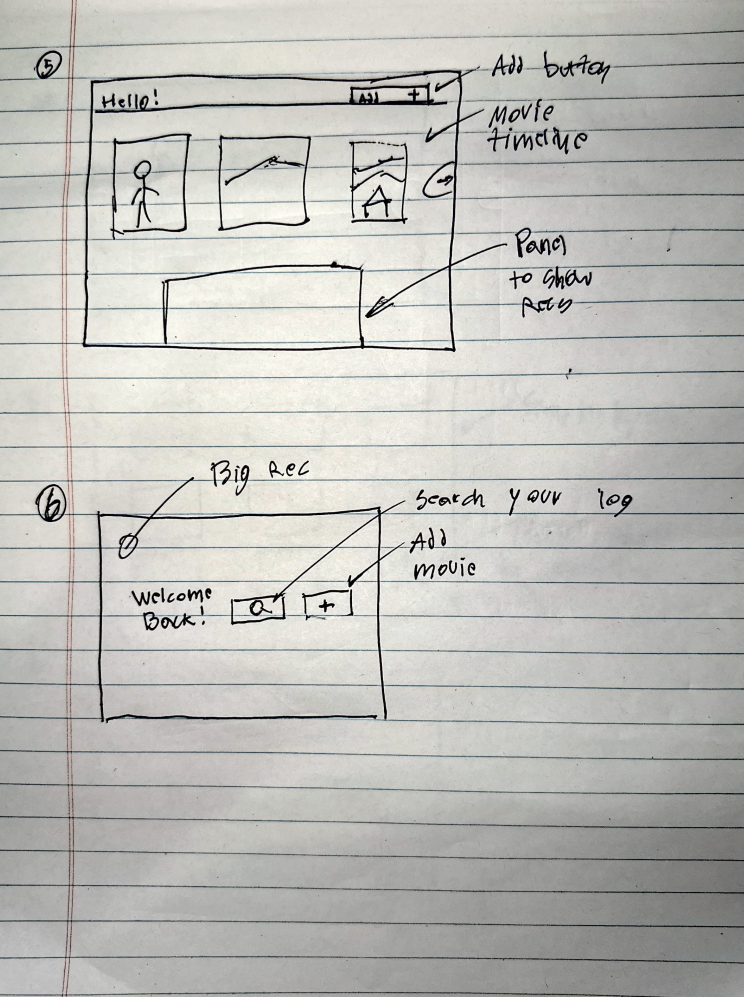 5
Add button
Hello!
Add +
Movie
timeline
→
Panel
to show
Recs
6
Big Rec
Search your log
Add
movie
Welcome
Back!
+